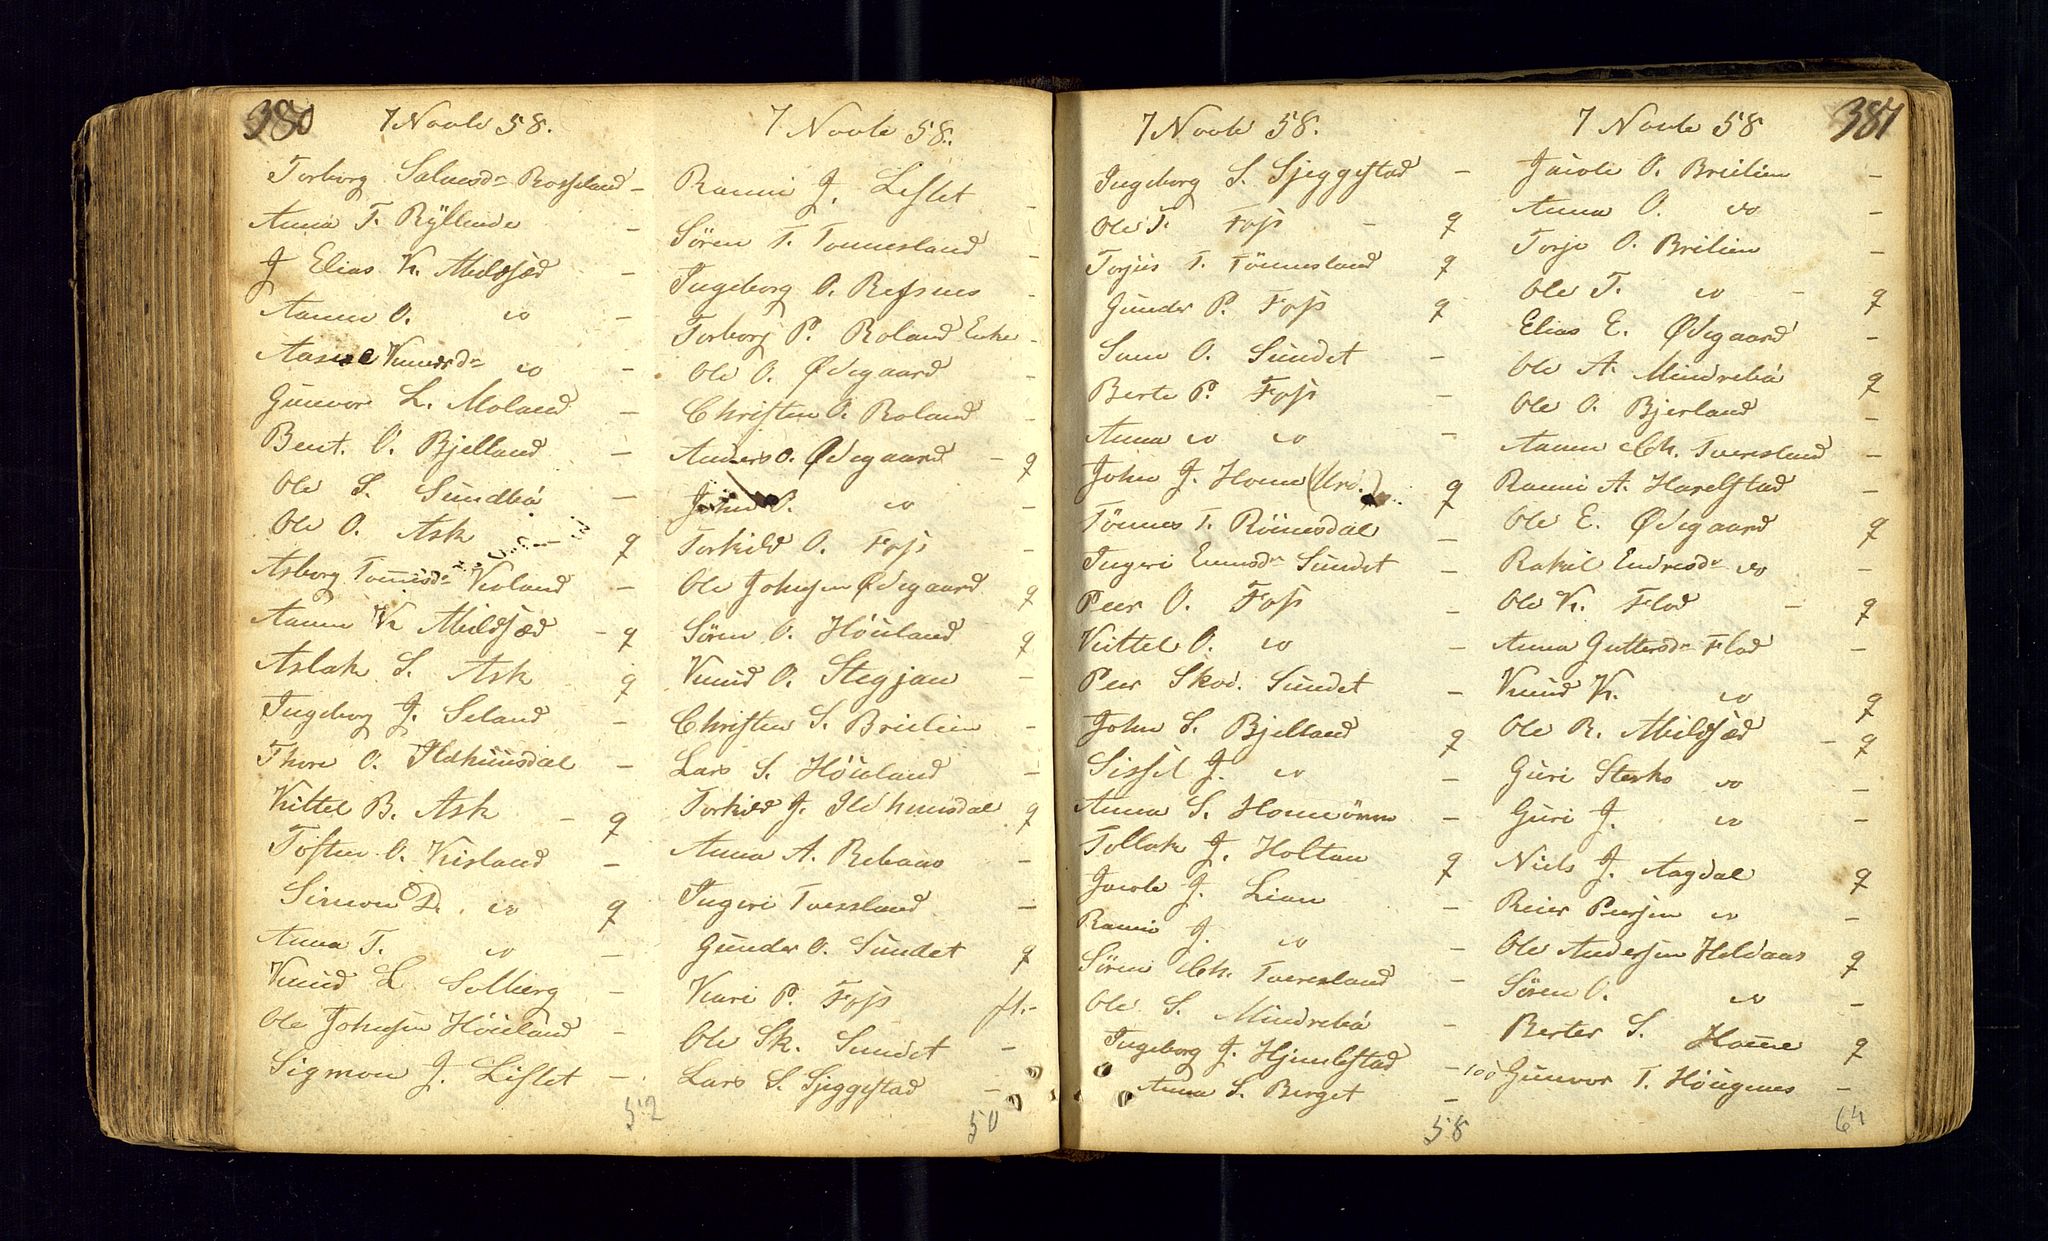 380
7 Novbr 58.
Torborg Salvesdr Rosseland -
Anna T. Røllende -
J Elias K. Mildsæd -
Aanen O. do -
Aasne Knudsdr do -
Gunvor L. Moland -
Bent. O. Bjelland -
Ole S. Sundbø -
Ole O. Ask - q
Asborg Tønnesdr Kvoland -
Aanen K Mildsæd - q
Aslak S. Ask q
Ingeborg J. Seland -
Thore O. Ildhuusdal -
Kittel B. Ask - q
Tosten O. Kvisland -
Simon D. do q
Anna T. do -
Knud L Solberg -
Ole Johnsen Høiland -
Sigmon J. Lislet -
52
7 Novbr 58.
Ranni J. Lislet -
Søren T. Tonnesland -
Ingeborg O. Refsnes -
Torborg P. Roland Enke -
Ole O. Ødegaard -
Christen O. Roland -
Anders O. Ødegaard - q
John O. do -
Torkild O. Foss -
Ole Johnsen Ødegaard q
Søren O. Høiland q
Knud O. Stegjan -
Christen S. Breilien -
Lars S. Høiland -
Torkild J. Ildhuusdal q
Anna A. Rebaas -
Ingeri Tversland -
Gunder O. Sundet q
Kari P. Foss ft.-
Ole Sk. Sundet -
Lars S. Sjeggestad -
50
7 Novbr 58.
Ingeborg S. Sjeggestad -
Ole T. Foss - q
Torjus T. Tønnesland q
Gunder P. Foss q
Sam O. Sundet -
Berte P. Foss -
Anna do do -
John J. Home q
Tønnes T. Røinesdal -
Ingeri Evensdr Sundet -
Peer O. Foss -
Kittel O. do -
Peer Skod. Sundet -
John S. Bjelland q
Sissel J. do -
Anna S. Homeømm -
Tollak J. Holtan q
Jacob J. Lian -
Ranni J. do -
Søren Ch. Tveresland -
Ole S. Mindrebø -
Ingeborg J. Hjemlestad -
Anna S. Berget -
58
7 Novbr 58
387
Jacob O. Breilien -
Anna O. do -
Torje O. Brilien -
Ole T. do - q
Elias E. Ødegaard -
Ole A. Mindrebø q
Ole O. Bjerland -
Aanen Ch. Tveresland -
Ranni A. Harelstad -
Ole E. Ødegaard q
Rakel Endresdr do -
Ole K. Flod - q
Anna Guttersdr Flod -
Knud K. do q
Ole R. Mildsæd - q
Guri Sterks do -
Guri J. do -
Niels J. Aagdal q
Reier Peersen do -
Ole Andersen Heldaas q
Søren O. do -
Berter S. Home q
100 Gunvor T. Høugenes -
64